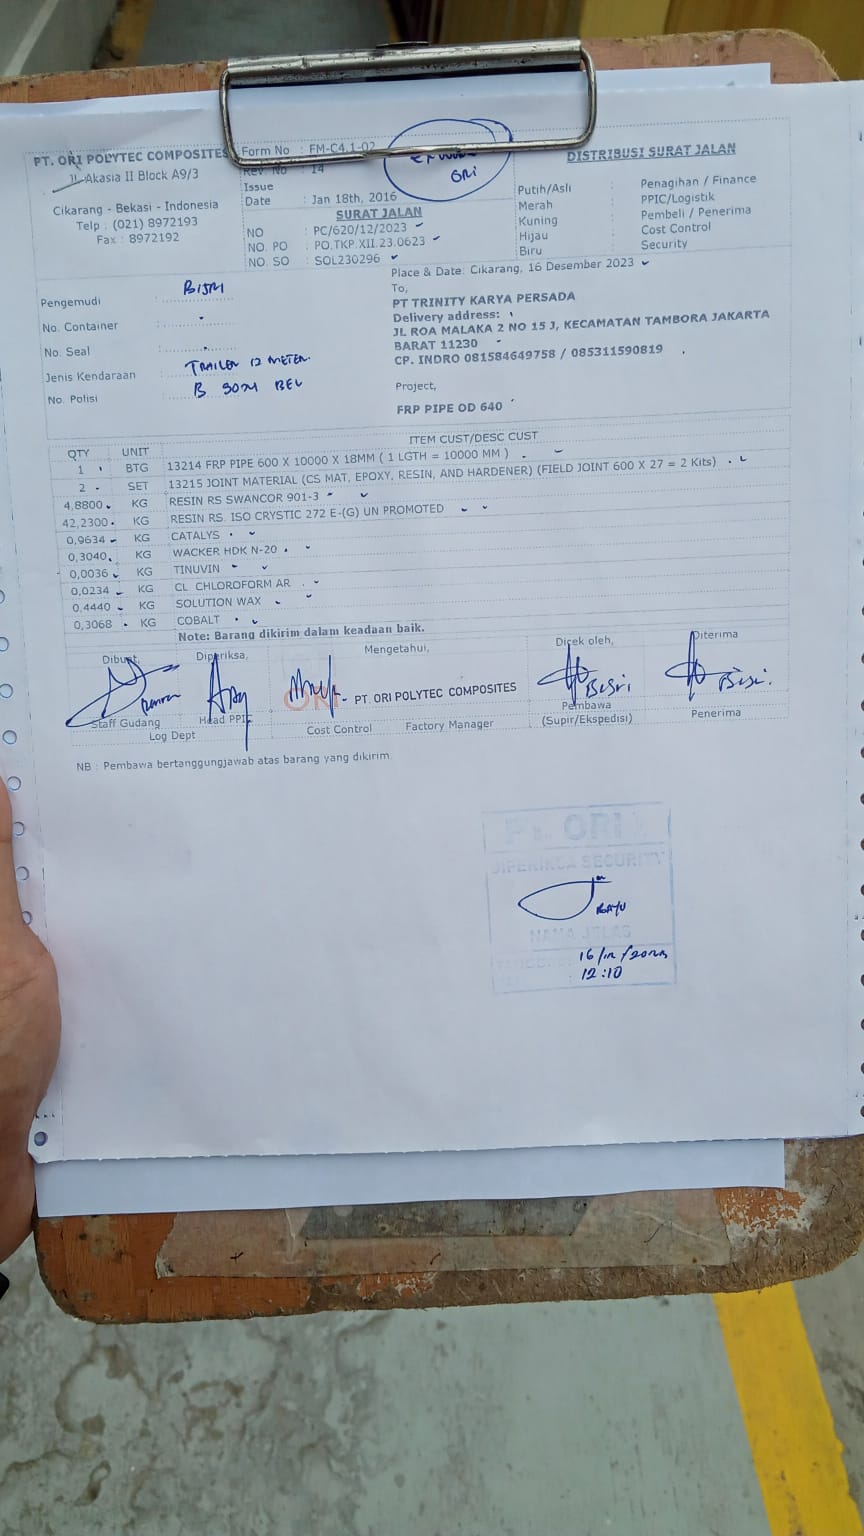 PT. ORI POLYTEC COMPOSITES
JL Akasia II Block A9/3
Cikarang - Bekasi - Indonesia
Telp : (021) 8972193
Fax : 8972192
Form No : FM-C4.1-02
Rev. No : 14
Issue
Date : Jan 18th, 2016
SURAT JALAN
NO : PC/620/12/2023
NO. PO : PO.TKP.XII.23.0623
NO. SO : SOL230296
ORI
DISTRIBUSI SURAT JALAN
Putih/Asli : Penagihan / Finance
Merah : PPIC/Logistik
Kuning : Pembeli / Penerima
Hijau : Cost Control
Biru : Security
Pengemudi :
No. Container :
No. Seal :
Jenis Kendaraan : TRAILER 12 METER.
No. Polisi :
Place & Date: Cikarang, 16 Desember 2023
To,
PT TRINITY KARYA PERSADA
Delivery address:
JL ROA MALAKA 2 NO 15 J, KECAMATAN TAMBORA JAKARTA
BARAT 11230
CP. INDRO 081584649758 / 085311590819
Project,
FRP PIPE OD 640
QTY UNIT ITEM CUST/DESC CUST
1 BTG 13214 FRP PIPE 600 X 10000 X 18MM ( 1 LGTH = 10000 MM )
2 SET 13215 JOINT MATERIAL (CS MAT, EPOXY, RESIN, AND HARDENER) (FIELD JOINT 600 X 27 = 2 Kits)
4,8800 KG RESIN RS SWANCOR 901-3
42,2300 KG RESIN RS. ISO CRYSTIC 272 E-(G) UN PROMOTED
0,9634 KG CATALYS
0,3040 KG WACKER HDK N-20
0,0036 KG TINUVIN
0,0234 KG CL. CHLOROFORM AR
0,4440 KG SOLUTION WAX
0,3068 KG COBALT
Note: Barang dikirim dalam keadaan baik.
Dibuat, Diperiksa, Mengetahui, Dicek oleh, Diterima
ORI PT. ORI POLYTEC COMPOSITES
Bisri Bisri.
Staff Gudang Head PPIC Cost Control Factory Manager Pembawa Penerima
Log Dept (Supir/Ekspedisi)
NB : Pembawa bertanggungjawab atas barang yang dikirim.
PT. ORI
DIPERIKSA SECURITY
BAYU
NAMA JELAS
12:10